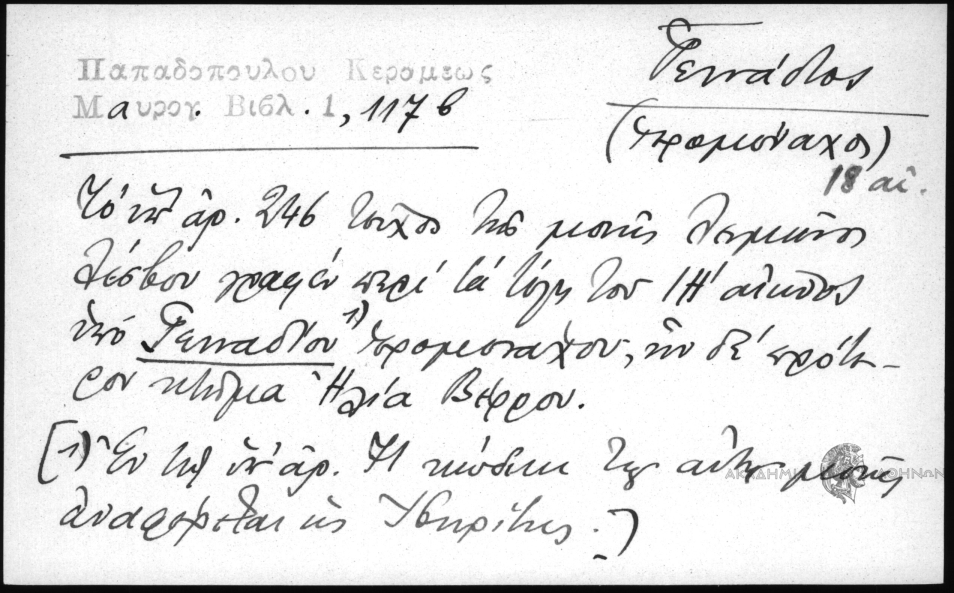 Παπαδοπούλου Κεραμέως
Μαυρογ. Βιβλ. 1, 117 β
Γεννάδιος
(ἱερομόναχος)
18 αἰ.
Τό ὑπ' ἀρ. 246 τεῦχος τῆς μονῆς Λειμῶνος
Λέσβου γραφέν περί τά τέλη τοῦ ΙΗ' αἰῶνος
ὑπό Γενναδίου 1) ἱερομονάχου, ἦν δέ πρότε-
ρον κτῆμα Ἠλία Βέρρου.
[1) Ἐν τῷ ὑπ' ἀρ. 71 κώδικι τῆς αὐτῆς μονῆς
ἀναφέρεται ὡς .]
ΑΚΑΔΗΜΙΑ ΑΘΗΝΩΝ